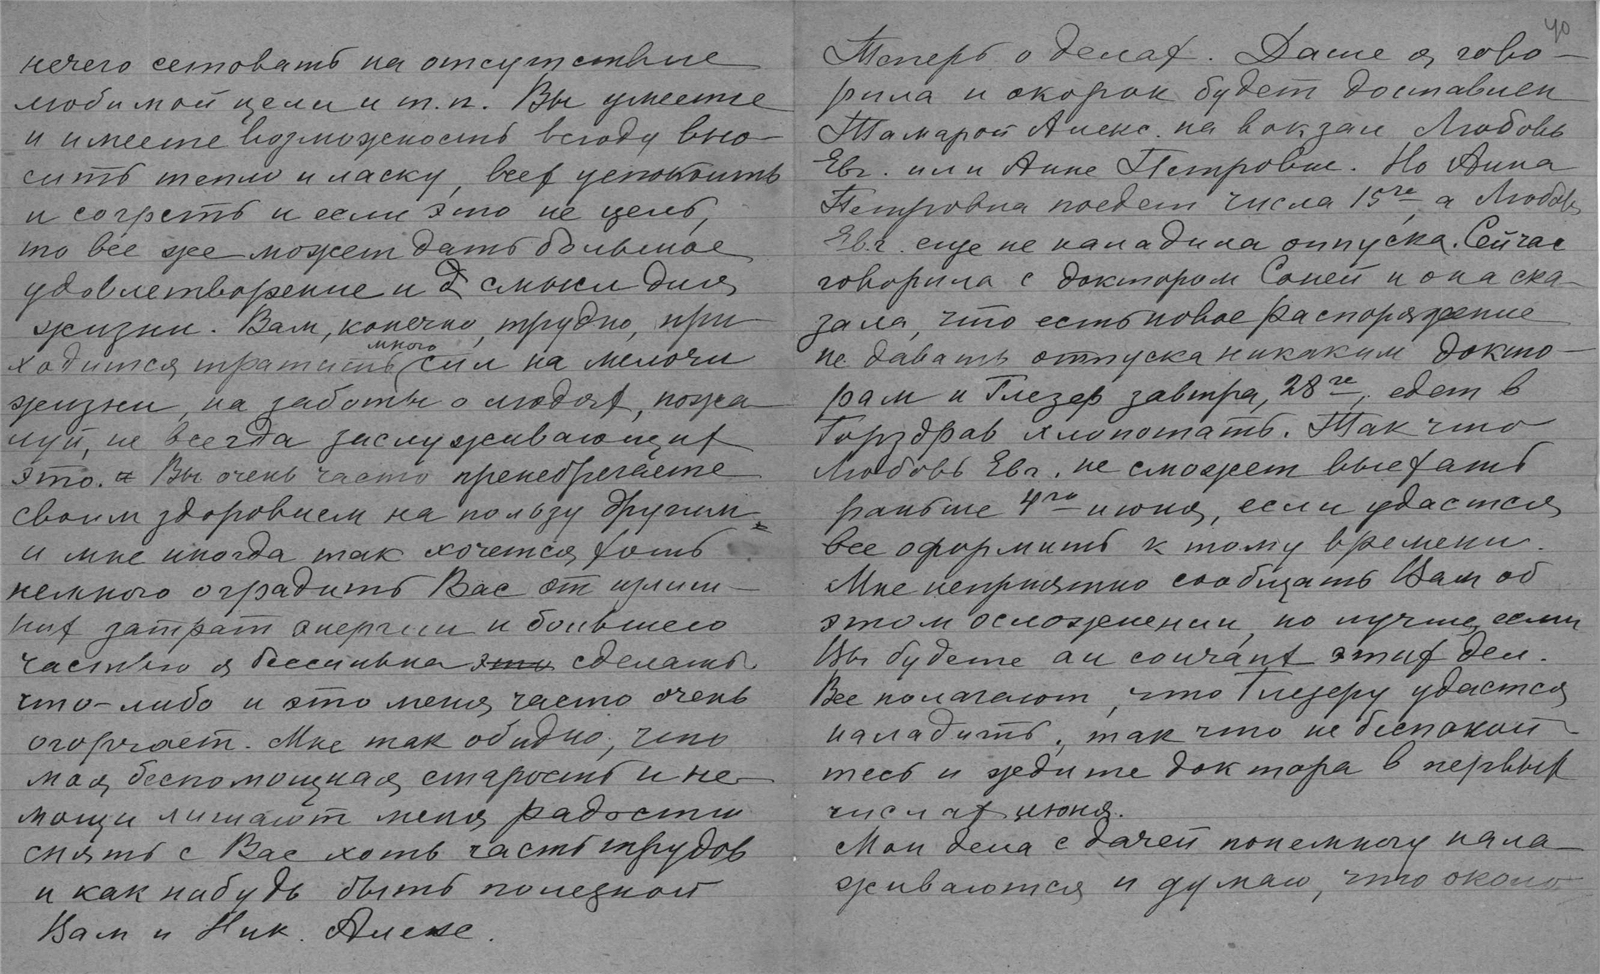 нечего сетовать на отсутствие
любимой цели и т.п. Вы умеете
и имеете возможность всюду вно-
сить тепло и ласку, всех успокоить
и согреть и если это не цель,
то все же может дать большое
удовлетворение и смысл для
жизни. Вам, конечно, трудно, при-
ходится тратить много сил на мелочи
жизни, на заботы о людях, пожа-
луй, не всегда заслуживающих
это. Вы очень часто пренебрегаете
своим здоровием на пользу другим
и мне иногда так хочется хоть
немного оградить Вас от излиш-
них затрат энергии и большею
частью я бессильна это сделать
что-либо и это меня часто очень
огорчает. Мне так обидно, что
моя беспомощная старость и не-
мощи лишают меня радости
снять с Вас хоть часть трудов
и как нибудь быть полезной
Вам и Ник. Алекс.
40
Теперь о делах. Даше я гово-
рила и окорок будет доставлен
Тамарой Алекс. на вокзал Любовь
Евг. или Анне Петровне. Но Анна
Петровна поедет числа 15го, а Любовь
Евг. еще не наладила отпуска. Сейчас
говорила с доктором Соней и она ска-
зала, что есть новое распоряжение
не давать отпуска никаким докто-
рам и Глезер завтра, 28го, едет в
Горздрав хлопотать. Так что
Любовь Евг. не сможет выехать
раньше 4го июня, если удастся
все оформить к тому времени.
Мне неприятно сообщать Вам об
этом осложнении, но лучше, если
Вы будете au courant этих дел.
Все полагают, что Глезеру удастся
наладить, так что не беспокой-
тесь и ждите доктора в первых
числах июня.
Мои дела с дачей понемногу нала-
живаются и думаю, что около